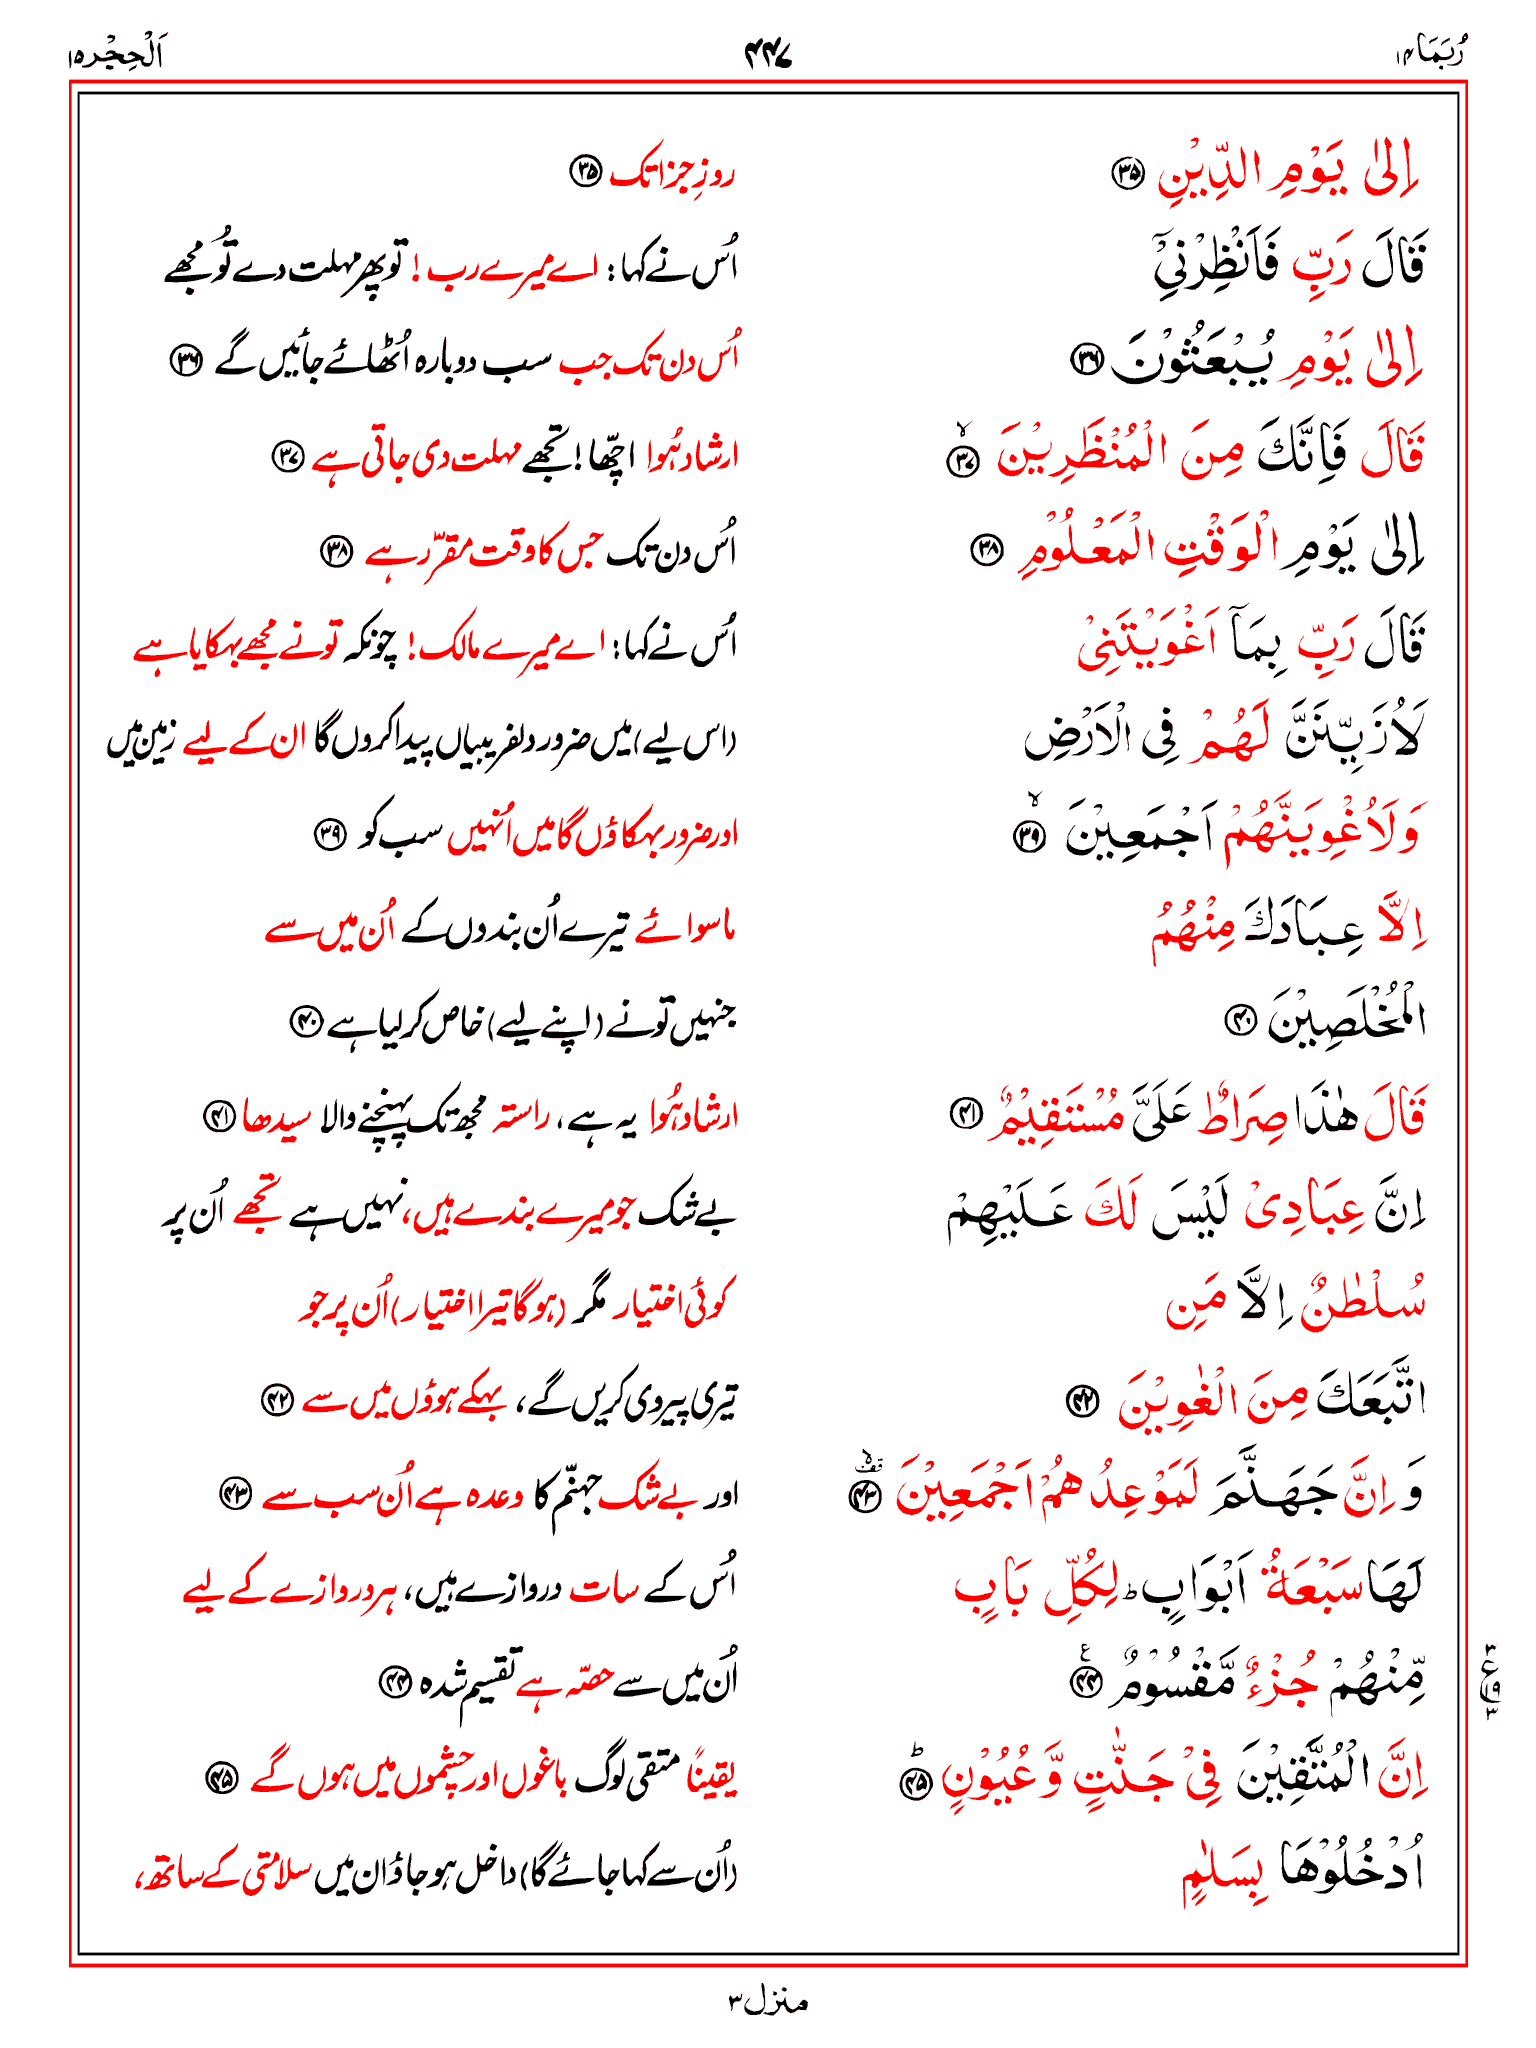 رُبَمَا ۱۴
۴۴۷
اَلْحِجْر ۱۵
اِلٰى يَوْمِ الدِّيْنِ ۳۵ روزِ جزا تک ۳۵
قَالَ رَبِّ فَاَنْظِرْنِیْۤ اُس نے کہا: اے میرے رب! تو پھر مہلت دے تُو مجھے
اِلٰى يَوْمِ يُبْعَثُوْنَ ۳۶ اُس دن تک جب سب دوبارہ اُٹھائے جائیں گے ۳۶
قَالَ فَاِنَّكَ مِنَ الْمُنْظَرِيْنَ ۙ۳۷ ارشاد ہُوا اچّھا! تجھے مہلت دی جاتی ہے ۳۷
اِلٰى يَوْمِ الْوَقْتِ الْمَعْلُوْمِ ۳۸ اُس دن تک جس کا وقت مقرّر ہے ۳۸
قَالَ رَبِّ بِمَاۤ اَغْوَيْتَنِیْ اُس نے کہا: اے میرے مالک! چونکہ تو نے مجھے بہکایا ہے
لَاُزَيِّنَنَّ لَهُمْ فِی الْاَرْضِ (اس لیے) میں ضرور دلفریبیاں پیدا کروں گا ان کے لیے زمین میں
وَلَاُغْوِيَنَّهُمْ اَجْمَعِيْنَ ۙ۳۹ اور ضرور بہکاؤں گا میں اُنہیں سب کو ۳۹
اِلَّا عِبَادَكَ مِنْهُمُ ماسوائے تیرے اُن بندوں کے اُن میں سے
الْمُخْلَصِيْنَ ۴۰ جنہیں تو نے (اپنے لیے) خاص کر لیا ہے ۴۰
قَالَ هٰذَا صِرَاطٌ عَلَیَّ مُسْتَقِيْمٌ ۴۱ ارشاد ہُوا یہ ہے، راستہ مجھ تک پہنچنے والا سیدھا ۴۱
اِنَّ عِبَادِیْ لَيْسَ لَكَ عَلَيْهِمْ بے شک جو میرے بندے ہیں، نہیں ہے تجھے اُن پر
سُلْطٰنٌ اِلَّا مَنِ کوئی اختیار مگر (ہو گا تیرا اختیار) اُن پر جو
اتَّبَعَكَ مِنَ الْغٰوِيْنَ ۴۲ تیری پیروی کریں گے، بہکے ہوؤں میں سے ۴۲
وَ اِنَّ جَهَنَّمَ لَمَوْعِدُهُمْ اَجْمَعِيْنَ ۙقف ۴۳ اور بے شک جہنّم کا وعدہ ہے اُن سب سے ۴۳
لَهَا سَبْعَةُ اَبْوَابٍ ؕ لِكُلِّ بَابٍ اُس کے سات دروازے ہیں، ہر دروازے کے لیے
مِّنْهُمْ جُزْءٌ مَّقْسُوْمٌ ۴۴ ع اُن میں سے حصّہ ہے تقسیم شدہ ۴۴
۳ ع ۱۹ ۳
اِنَّ الْمُتَّقِيْنَ فِیْ جَنّٰتٍ وَّ عُيُوْنٍ ؕ۴۵ یقیناً متقی لوگ باغوں اور چشموں میں ہوں گے ۴۵
اُدْخُلُوْهَا بِسَلٰمٍ (اُن سے کہا جائے گا) داخل ہو جاؤ ان میں سلامتی کے ساتھ،
منزل ۳